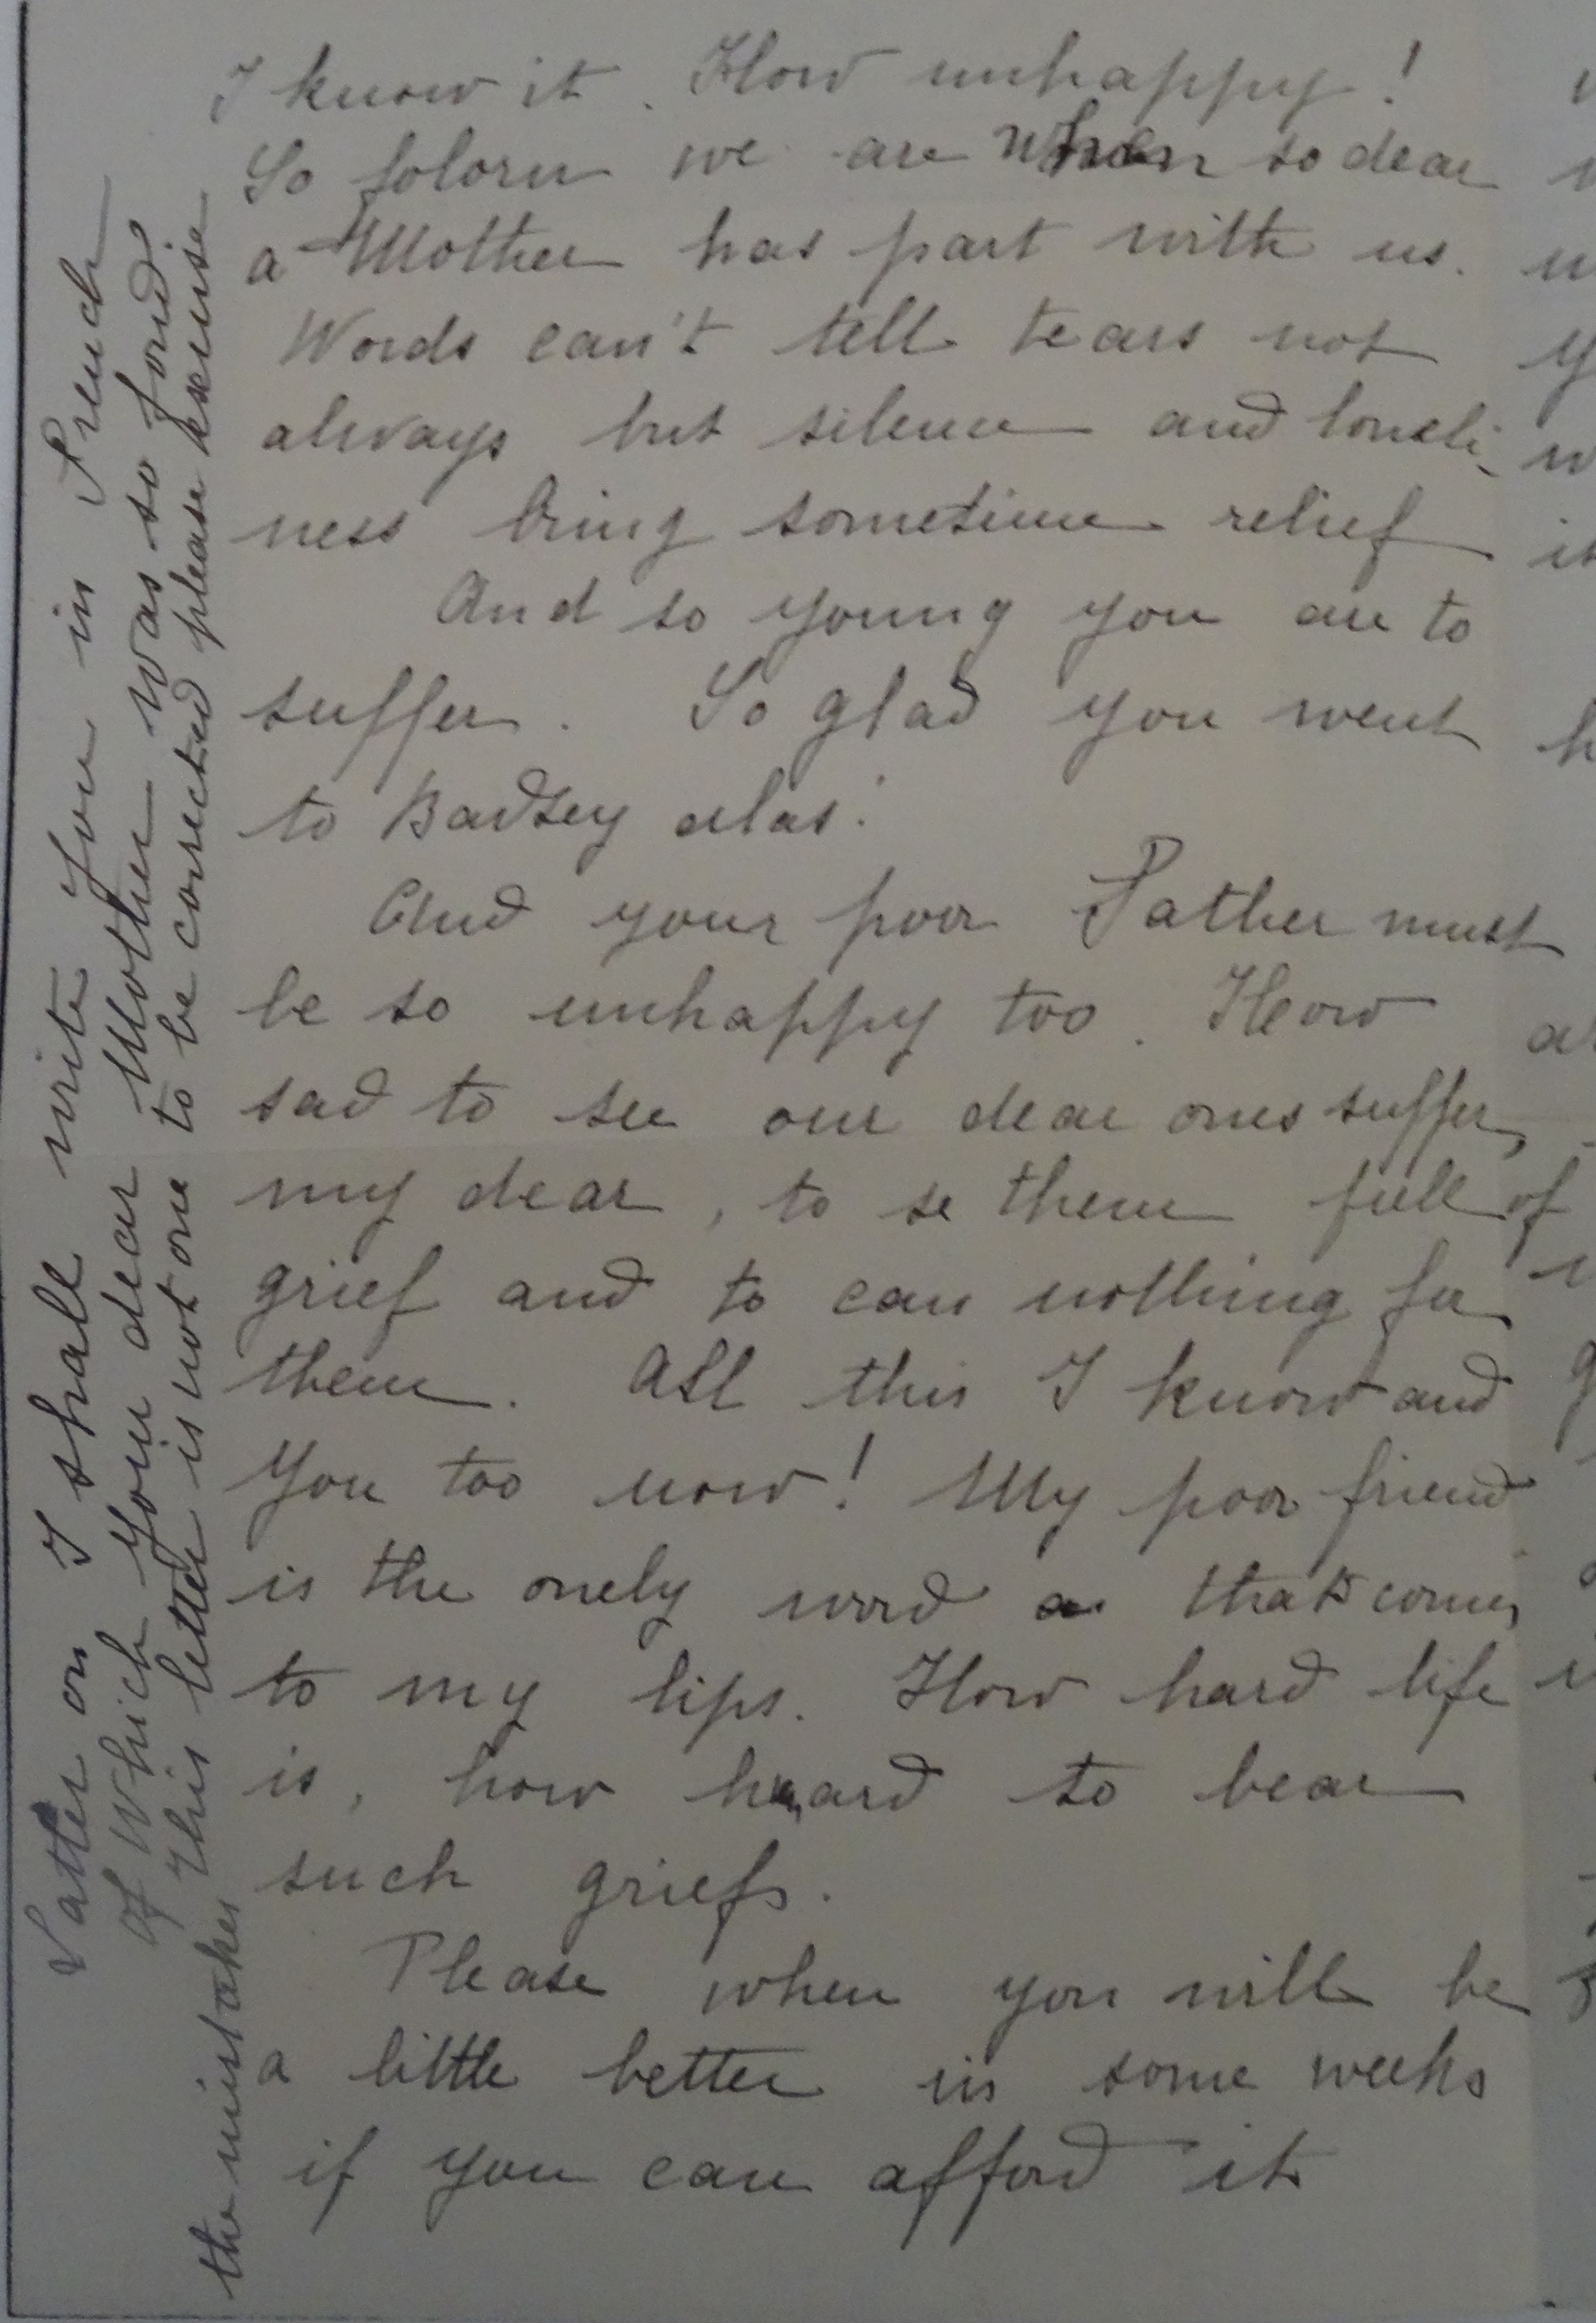 I know it. How unhappy!
So folorn we are when so dear
a Mother has part with us.
Words can't tell tears not
always but silence and loneli-
ness bring sometime relief
And so young you are to
suffer. So glad you went
to Badsey alas!
And your poor Father must
be so unhappy too. How
sad to see our dear ones suffer,
my dear, to se them full of
grief and to can nothing for
them. All this I know and
you too now! My poor friend
is the onely word that comes
to my lips. How hard life
is, how hard to bear
such griefs.
Please when you will be
a little better in some weeks
if you can afford it
Latter on I shall write you in French
of which your dear Mother was so fond.
This letter is not one to be corrected please excuse
the mistakes